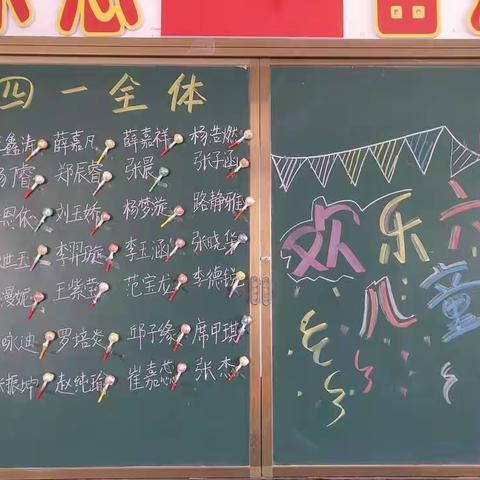 四一全体
鑫涛 薛嘉凡 薛嘉祥 杨浩燃
睿 郑辰睿 张晨 张子涵
恩依 刘玉娇 杨梦漩 路静雅
世玉 李羿璇 李玉涵 张晓华
漫妮 王紫萱 范宝龙 李德锐
咏迪 罗培炎 邱子缘 席甲琪
振坤 赵纯瑜 崔嘉芯 张杰
欢乐六
儿童